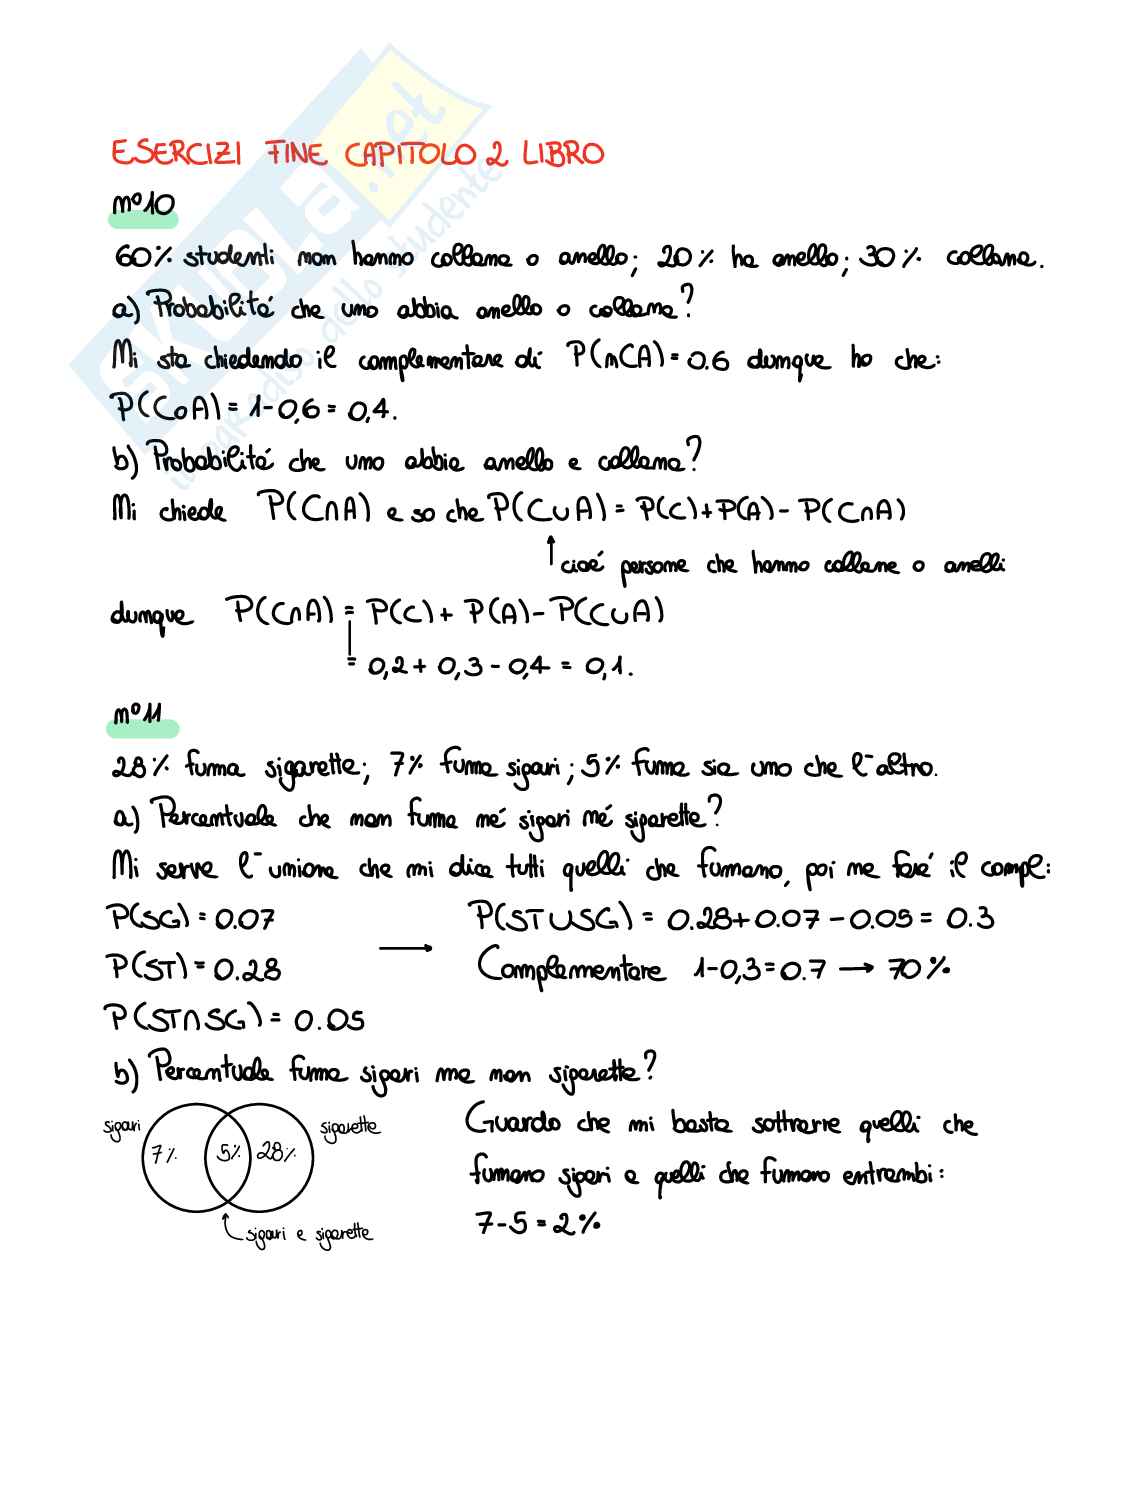 ESERCIZI FINE CAPITOLO 2 LIBRO
n°10
60% studenti non hanno collana o anello; 20% ha anello; 30% collana.
a) Probabilitá che uno abbia anello o collana?
Mi sta chiedendo il complementare di P(nCA)=0.6 dunque ho che:
P(CoA) = 1-0,6 = 0,4.
b) Probabilitá che uno abbia anello e collana?
Mi chiede P(C∩A) e so che P(C∪A) = P(C)+P(A)-P(C∩A)
↑ cioé persone che hanno collane o anelli
dunque P(C∩A) = P(C)+P(A)-P(C∪A)
= 0,2+0,3-0,4 = 0,1.
n°11
28% fuma sigarette; 7% fuma sigari; 5% fuma sia uno che l'altro.
a) Percentuale che non fuma né sigari né sigarette?
Mi serve l'unione che mi dica tutti quelli che fumano, poi ne faró il compl:
P(SG) = 0.07 P(ST∪SG) = 0.28+0.07-0.05 = 0.3
P(ST) = 0.28 → Complementare 1-0,3=0.7 → 70%
P(ST∩SG) = 0.05
b) Percentuale fuma sigari ma non sigarette?
sigari 7% 5% 28% sigarette
sigari e sigarette
Guardo che mi basta sottrarre quelli che
fumano sigari e quelli che fumano entrambi:
7-5 = 2%
SKUOLA.net